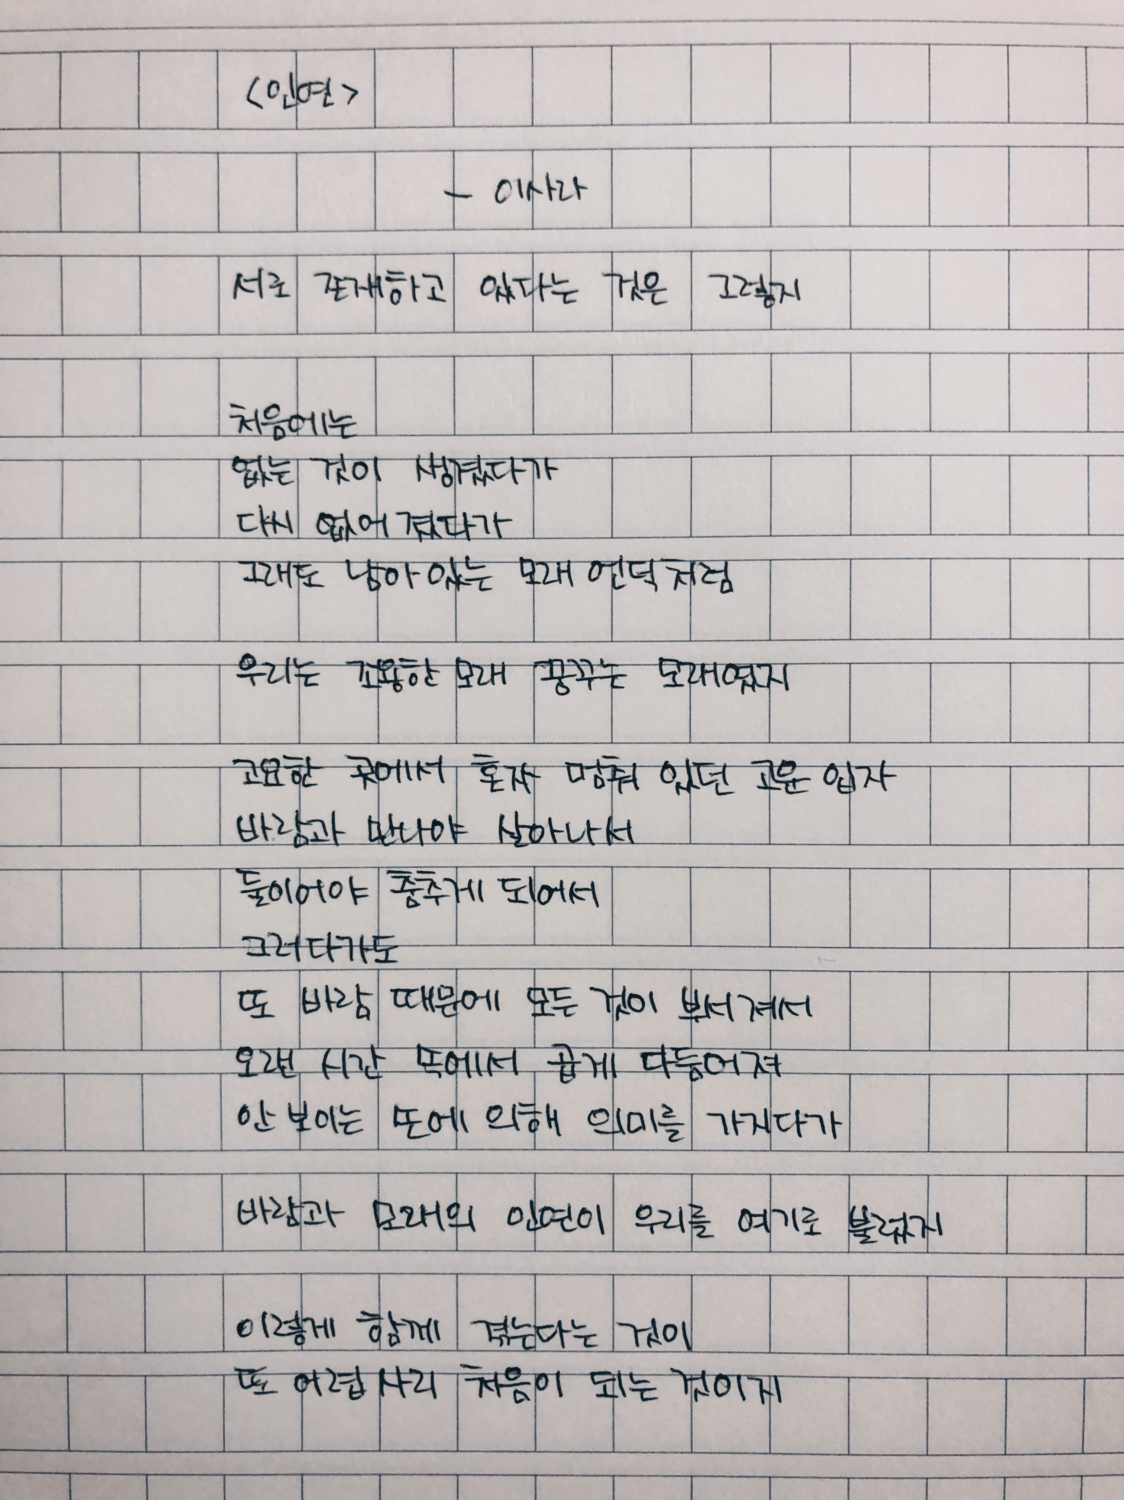 <인연>
- 이사라
서로 존재하고 있다는 것은 그렇지
처음에는
없는 것이 생겼다가
다시 없어졌다가
그래도 남아 있는 모래 언덕처럼
우리는 고요한 모래 꿈꾸는 모래였지
고요한 곳에서 혼자 멈춰 있던 고운 입자
바람과 만나야 살아나서
둘이어야 춤추게 되어서
그러다가도
또 바람 때문에 모든 것이 부서져서
오랜 시간 속에서 곱게 다듬어져
안 보이는 에 의해 의미를 가지다가
바람과 모래의 인연이 우리를 여기로 불렀지
이렇게 함께 겪는다는 것이
또 어렵사리 처음이 되는 것이지